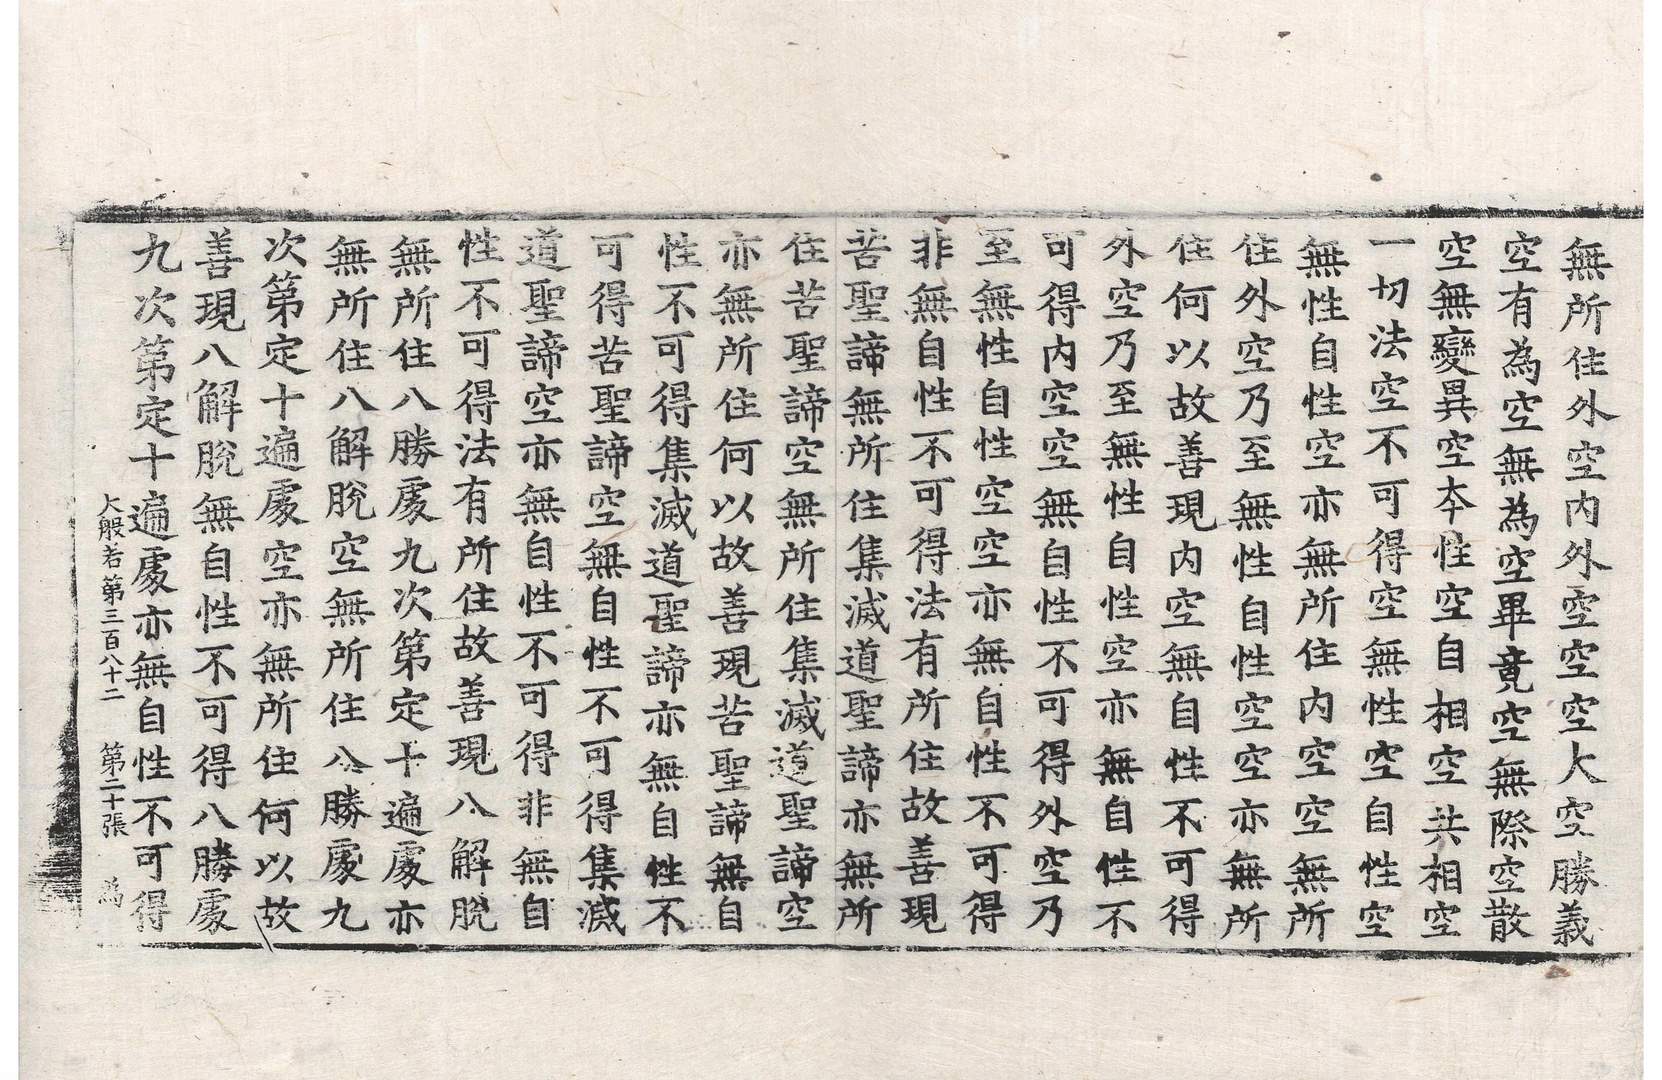 無所住外空内外空空空大空勝義
空有為空無為空畢竟空無際空散
空無變異空本性空自相空共相空
一切法空不可得空無性空自性空
無性自性空亦無所住内空空無所
住外空乃至無性自性空空亦無所
住何以故善現内空無自性不可得
外空乃至無性自性空亦無自性不
可得内空空無自性不可得外空乃
至無性自性空空亦無自性不可得
非無自性不可得法有所住故善現
苦聖諦無所住集滅道聖諦亦無所
住苦聖諦空無所住集滅道聖諦空
亦無所住何以故善現苦聖諦無自
性不可得集滅道聖諦亦無自性不
可得苦聖諦空無自性不可得集滅
道聖諦空亦無自性不可得非無自
性不可得法有所住故善現八解脫
無所住八勝處九次第定十遍處亦
無所住八解脫空無所住八勝處九
次第定十遍處空亦無所住何以故
善現八解脫無自性不可得八勝處
九次第定十遍處亦無自性不可得
大般若第三百八十二　第二十張　為